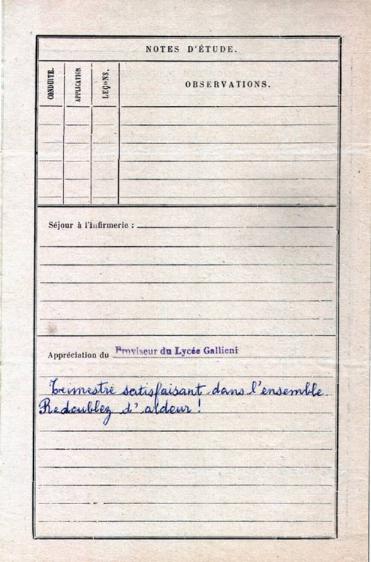 NOTES D'ÉTUDE.
CONDUITE.
APPLICATION
LEÇONS.
OBSERVATIONS.
Séjour à l'Infirmerie :
Appréciation du Proviseur du Lycée Gallieni
Trimestre satisfaisant dans l'ensemble.
Redoublez d'ardeur !